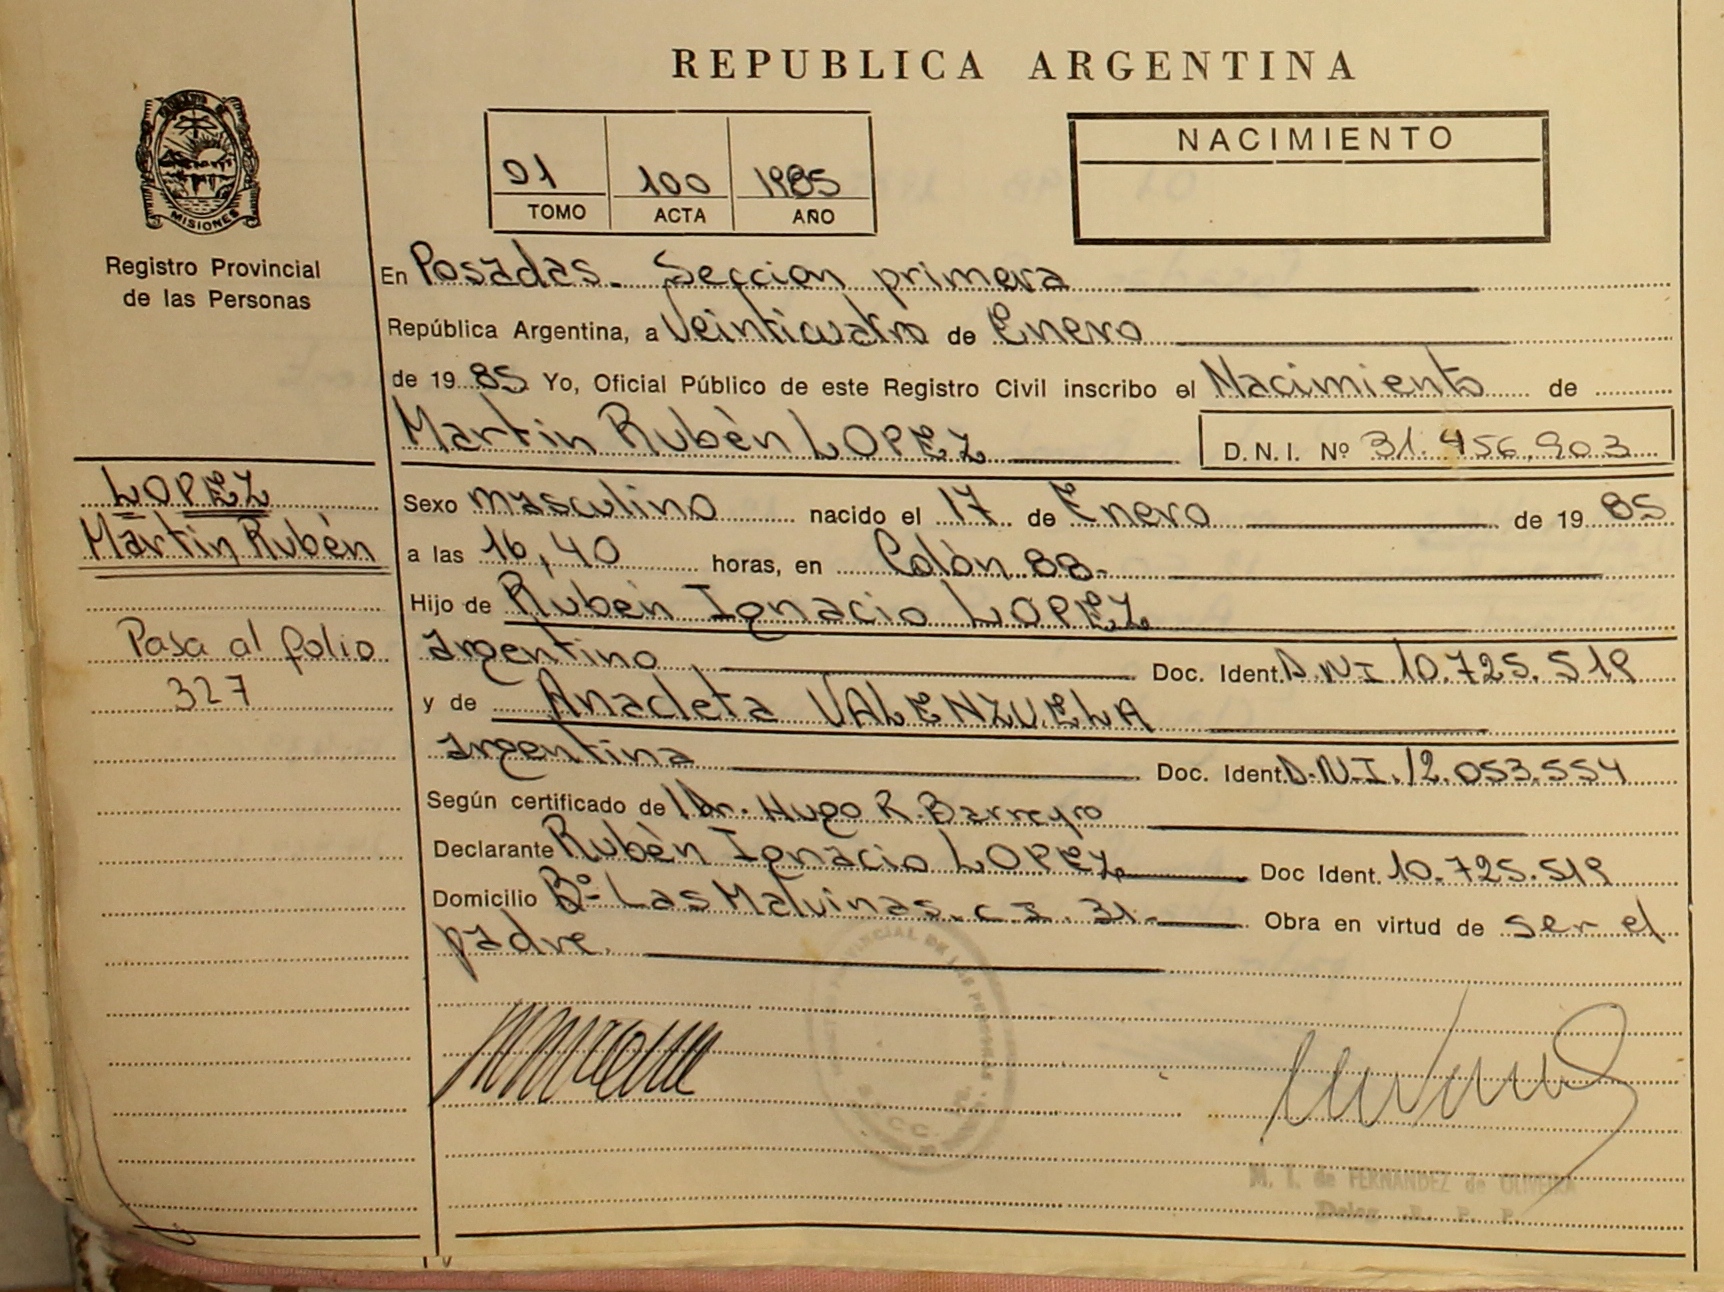 REPUBLICA ARGENTINA
MISIONES
Registro Provincial
de las Personas
01 100 1985
TOMO ACTA AÑO
NACIMIENTO
En Posadas. Sección primera
República Argentina, a Veinticuatro de Enero
de 19 85 Yo, Oficial Público de este Registro Civil inscribo el Nacimiento de
Martin Rubén LOPEZ D.N.I. Nº 31.456.903
LOPEZ
Martin Rubén
Pasa al folio
327
Sexo masculino nacido el 17 de Enero de 19 85
a las 16,40 horas, en Colón 88.
Hijo de Rubén Ignacio LOPEZ
argentino Doc. Ident. D.N.I. 10.725.519
y de Anacleta VALENZUELA
argentina Doc. Ident. D.N.I. 12.053.554
Según certificado de Dr. Hugo R. Barreyro
Declarante Rubén Ignacio LOPEZ Doc Ident. 10.725.519
Domicilio Bº Las Malvinas. 31. Obra en virtud de ser el
padre.
M. I. de FERNANDEZ de OLIVEIRA
Deleg. R. P. P.